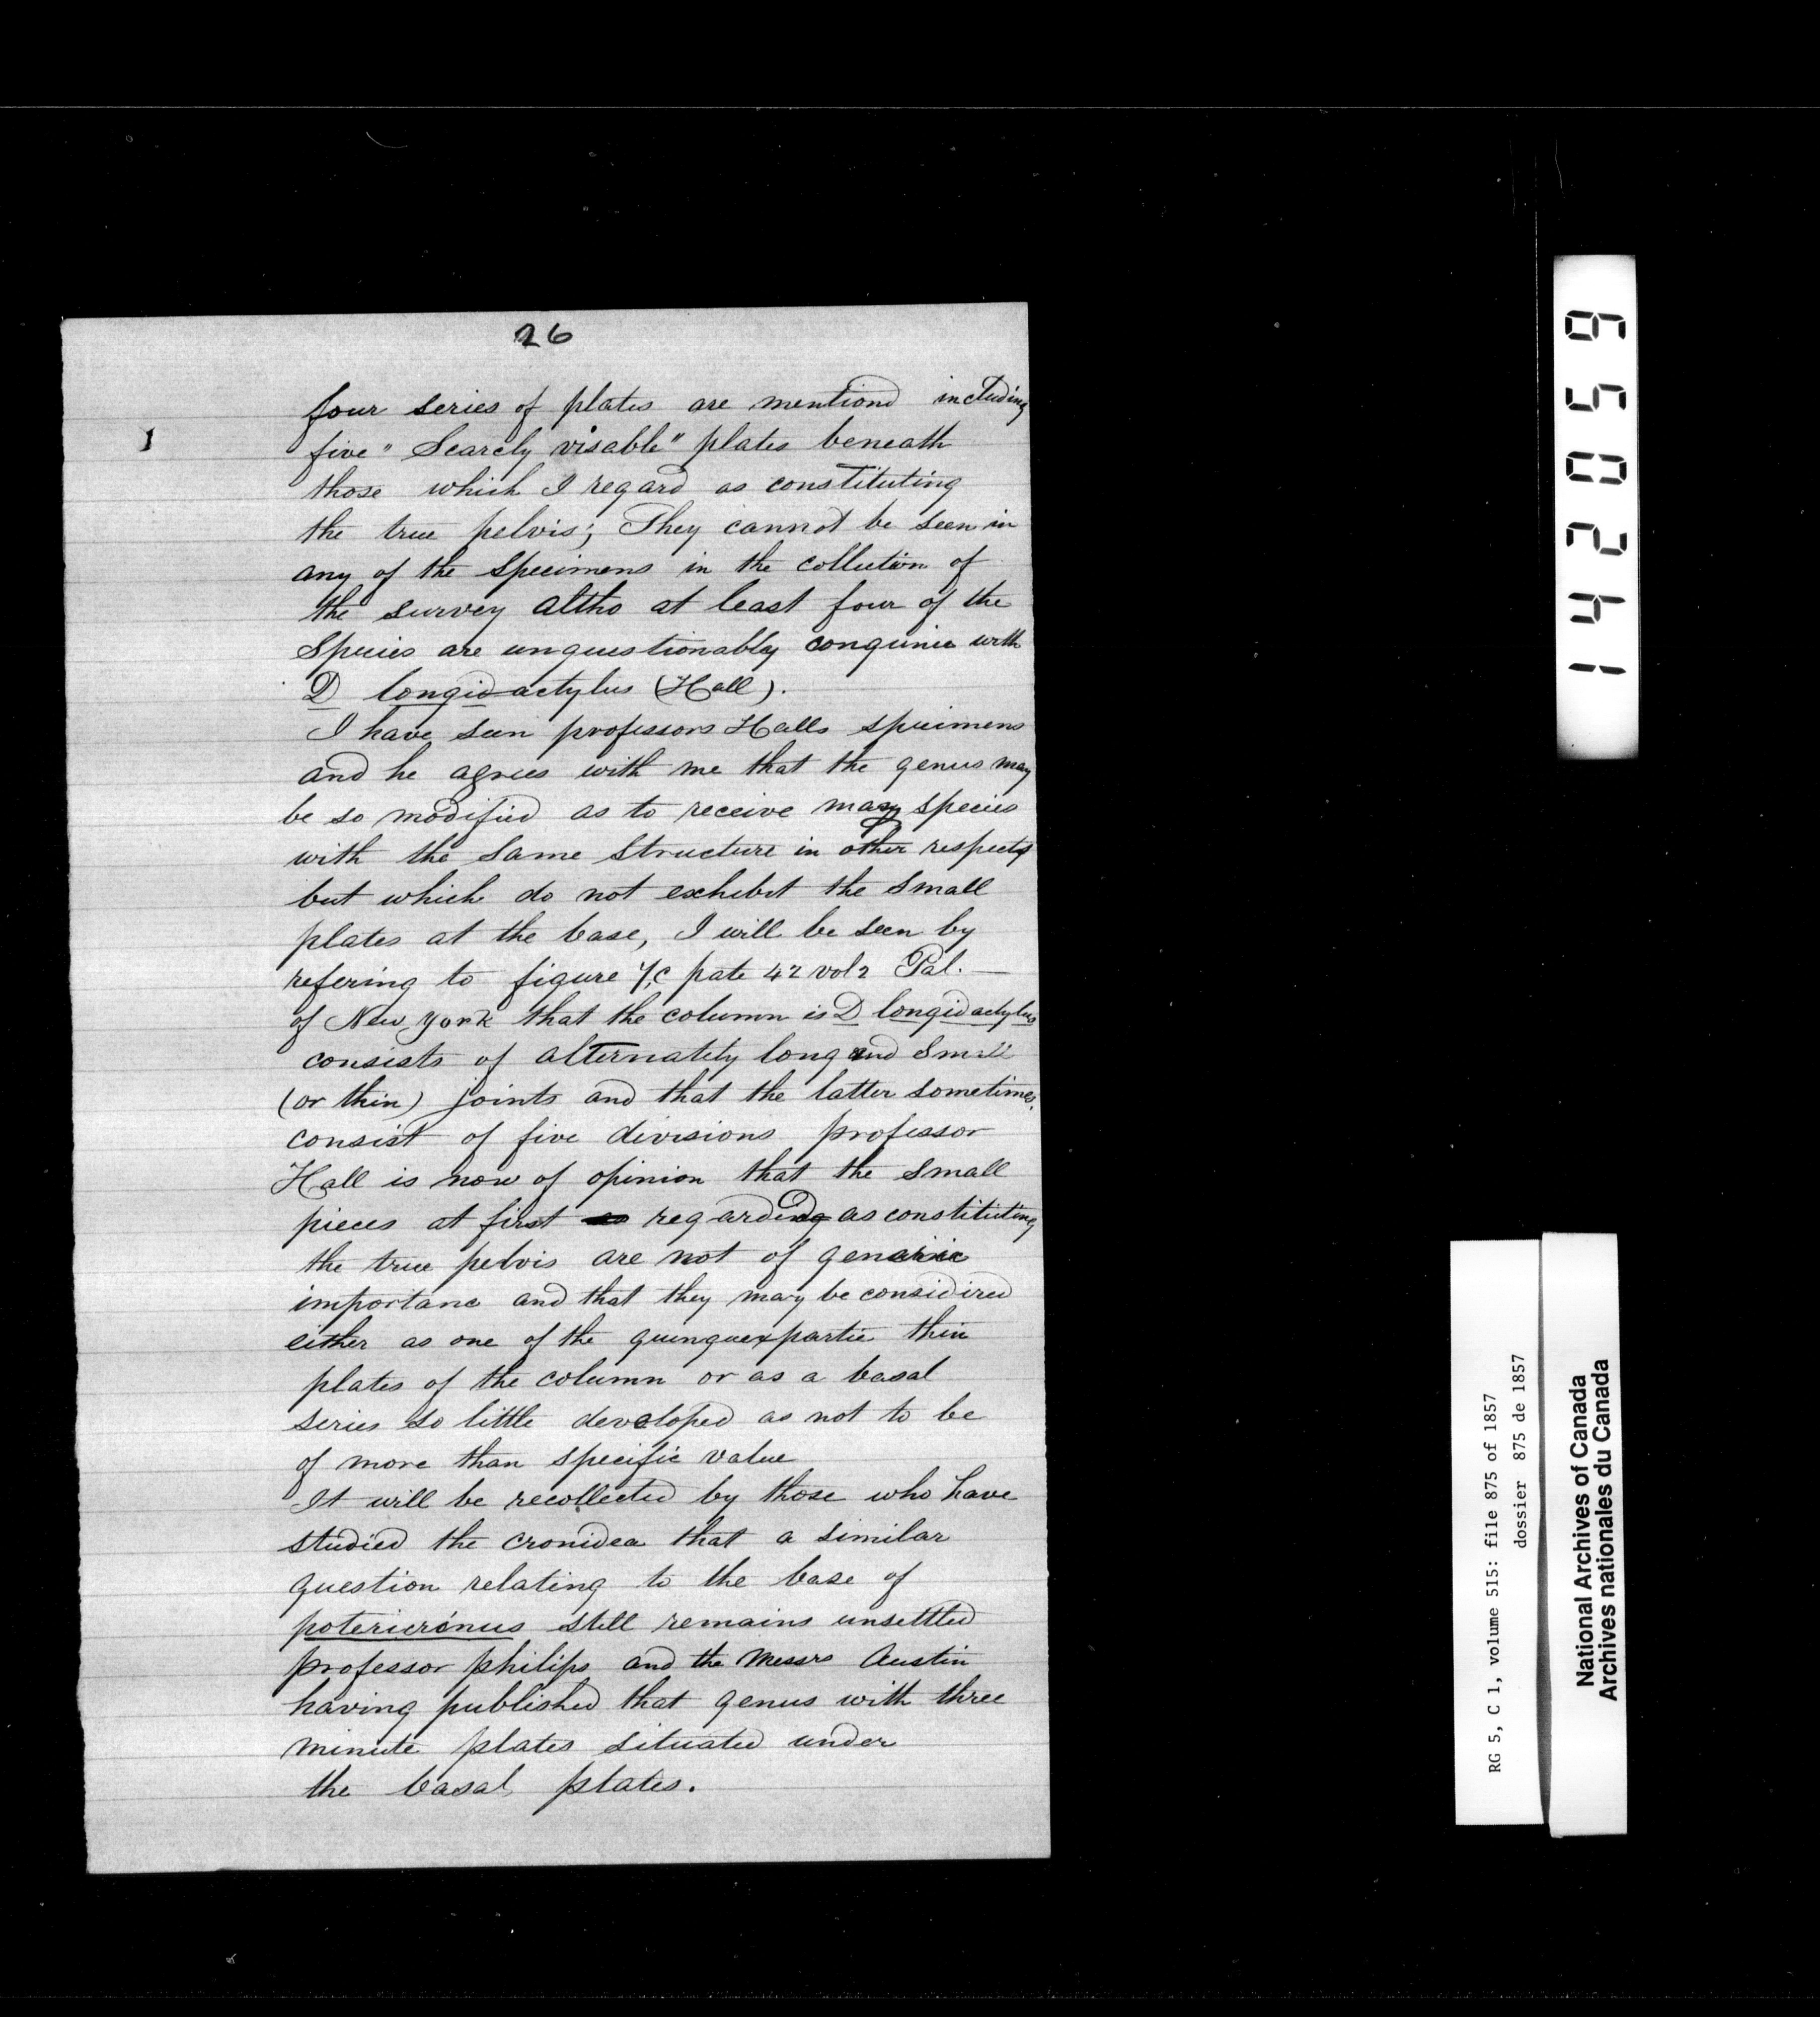 26
four series of plates are mentiond including
1
five "Scarcly visable" plates beneath
those which I regard as constituting
the true pelvis; They cannot be seen in
any of the specimens in the collection of
the survey altho at least four of the
Species are unquestionably with
D longidactylus (Hall).
I have seen professors Halls specimens
and he agrees with me that the genus may
be so modified as to receive many species
with the same structure in other respects
but which do not exhibit the small
plates at the base, I will be seen by
refering to figure pate 42 vol 2 Pal. —
of New York that the column is D longidactylus
consists of alternately long and Small
(or thin) joints and that the latter sometimes
consist of five divisions professor
Hall is now of opinion that the small
pieces at first regarded as constituting
the true pelvis are not of generic
importanc and that they may be considired
either as one of the thin
plates of the column or as a basal
series so little developed as not to be
of more than specific value
It will be recollected by those who have
studied the cronidea that a similar
question relating to the base of
potericrinus still remains unsettled
professor philips and the Messrs Austin
having published that genus with three
minute plates situated under
the basal plates.
142059
RG 5, C 1, volume 515: file 875 of 1857
dossier 875 de 1857
National Archives of Canada
Archives nationales du Canada